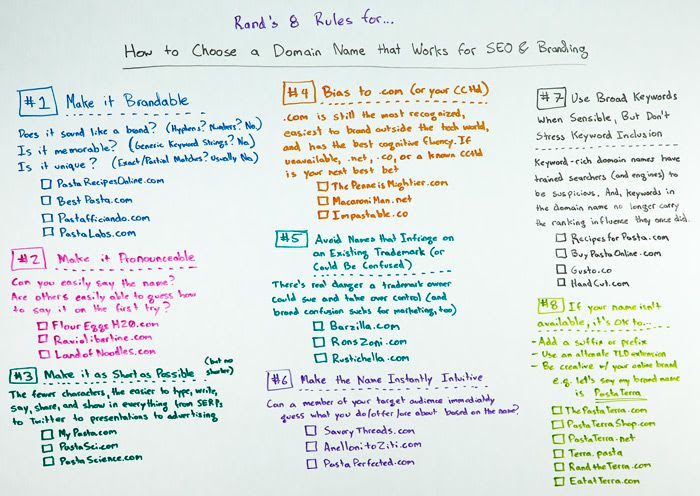 Rand's 8 Rules for...
How to Choose a Domain Name that Works for SEO & Branding
#1 Make it Brandable
Does it sound like a brand? (Hyphens? Numbers? No)
Is it memorable? (Generic Keyword Strings? No)
Is it unique? (Exact/Partial Matches? Usually No)
PastaRecipesOnline.com
BestPasta.com
Pastafficiando.com
PastaLabs.com
#2 Make it Pronounceable
Can you easily say the name?
Are others easily able to guess how
to say it on the first try?
FlourEggsH20.com
Raviolibertine.com
LandofNoodles.com
#3 Make it as Short as Possible (but no
shorter)
The fewer characters, the easier to type, write,
say, share, and show in everything from SERPs
to Twitter to presentations to advertising
MyPasta.com
PastaSci.com
PastaScience.com
#4 Bias to .com (or your CCtld)
.com is still the most recognized,
easiest to brand outside the tech world,
and has the best cognitive fluency. If
unavailable, .net, .co, or a known CCtld
is your next best bet
ThePenneisMightier.com
MacaroniMan.net
Impastable.co
#5 Avoid Names that Infringe on
an Existing Trademark (or
Could Be Confused)
There's real danger a trademark owner
could sue and take over control (and
brand confusion sucks for marketing, too)
Barzilla.com
RonsZoni.com
Rustichella.com
#6 Make the Name Instantly Intuitive
Can a member of your target audience immediately
guess what you do/offer/are about based on the name?
SavoryThreads.com
AnellonitoZiti.com
PastaPerfected.com
#7 Use Broad Keywords
When Sensible, But Don't
Stress Keyword Inclusion
Keyword-rich domain names have
trained searchers (and engines) to
be suspicious. And, keywords in
the domain name no longer carry
the ranking influence they once did.
RecipesforPasta.com
BuyPastaOnline.com
Gusto.co
HandCut.com
#8 If your name isn't
available, it's OK to...
- Add a suffix or prefix
- Use an alternate TLD extension
- Be creative w/ your entire brand
e.g. let's say my brand name
is PastaTerra
ThePastaTerra.com
PastaTerraShop.com
PastaTerra.net
Terra.pasta
RandtheTerra.com
EatatTerra.com